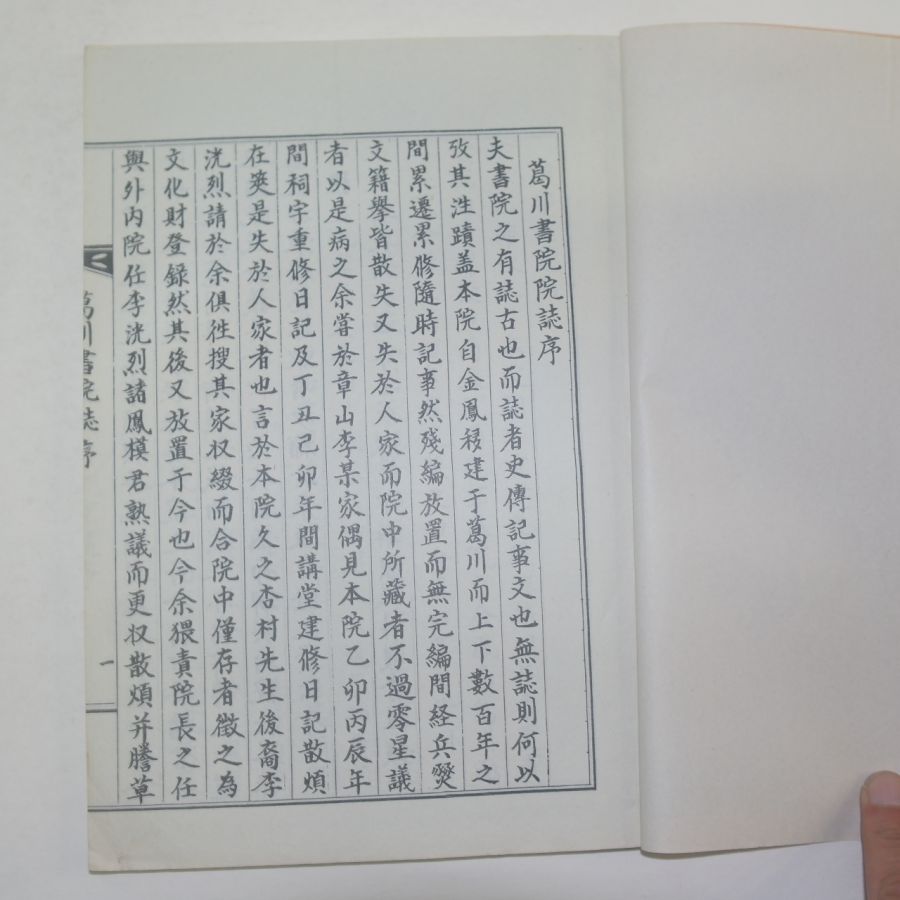 葛川書院院誌序
夫書院之有誌古也而誌者史傳記事文也無誌則何以
攷其泩蹟盖本院自金鳳移建于葛川而上下數百年之
間累遷累修隨時記事然殘編放置而無完編間経兵燹
文籍擧皆散失又失於人家而院中所藏者不過零星議
者以是病之余嘗於章山李杲家偶見本院乙卯丙辰年
間祠宇重修日記及丁丑己卯年間講堂建修日記散煩
在篋是失於人家者也言於本院久之杏村先生後裔李
洸烈請於余俱徃搜其家収綴而合院中僅存者徵之為
文化財登録然其後又放置于今也今余猥責院長之任
與外内院任李洸烈諸鳳模君熟議而更収散煩并謄草
葛川書院誌序
一